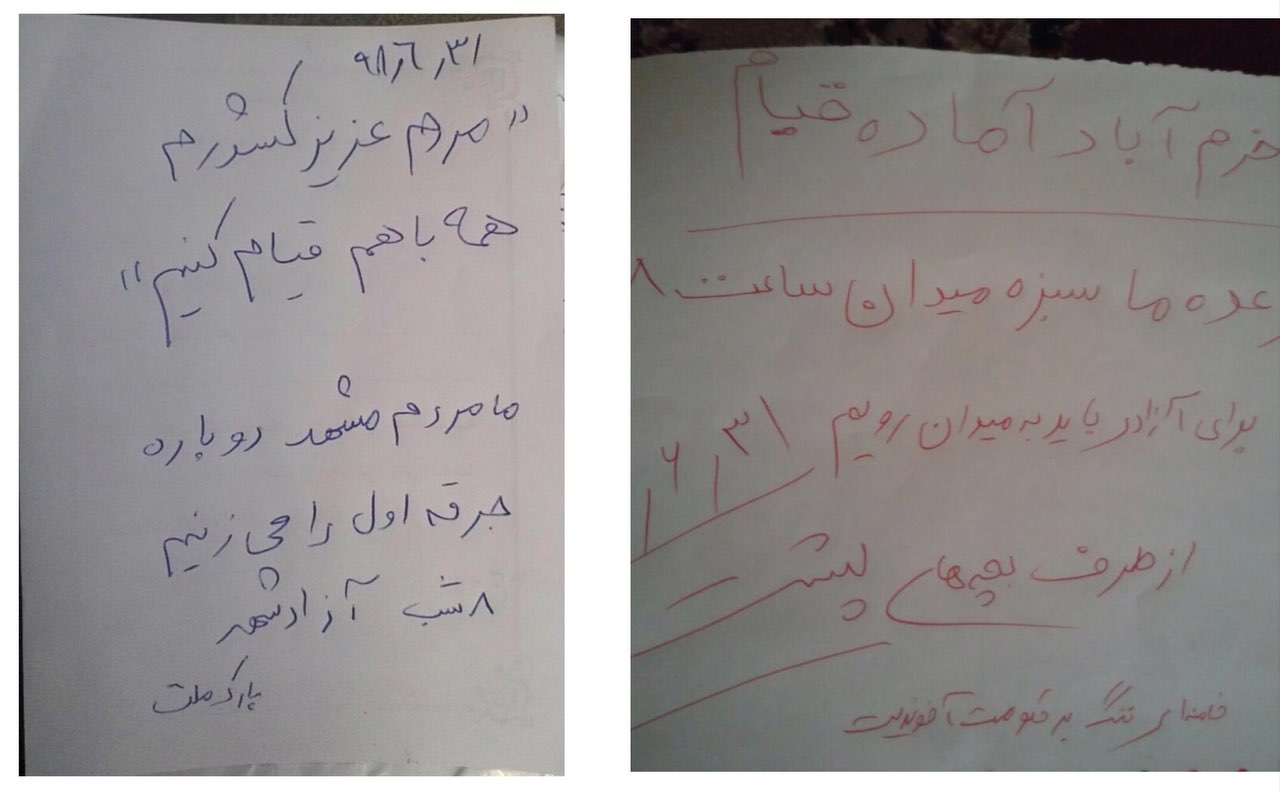 ۹۸٫۶٫۳۱
"مردم عزیز کشورم
همه با هم قیام کنیم"
ما مردم مشهد دوباره
جرقه اول را می زنیم
۸ شب آزادشهر
پارک ملت
خرم آباد آماده قیام
وعده ما سبزه میدان ساعت ۸
برای آزادی باید به میدان رویم ۶٫۳۱
از طرف بچه های پشت
خامنه ای ننگ بر حکومت آخوندیت